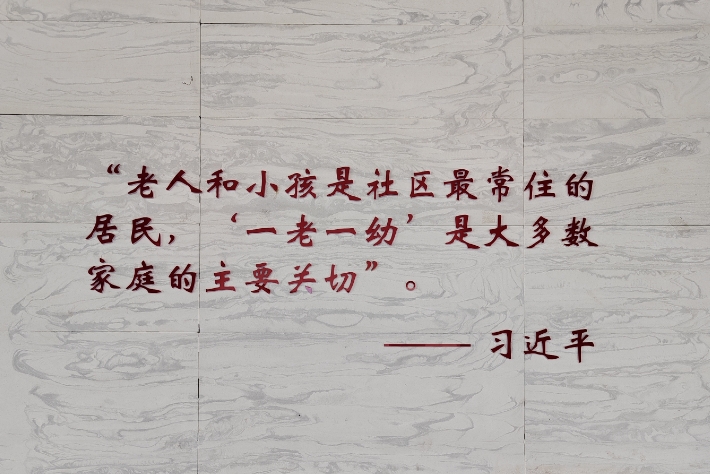 “老人和小孩是社区最常住的
居民，‘一老一幼’是大多数
家庭的主要关切”。
——习近平